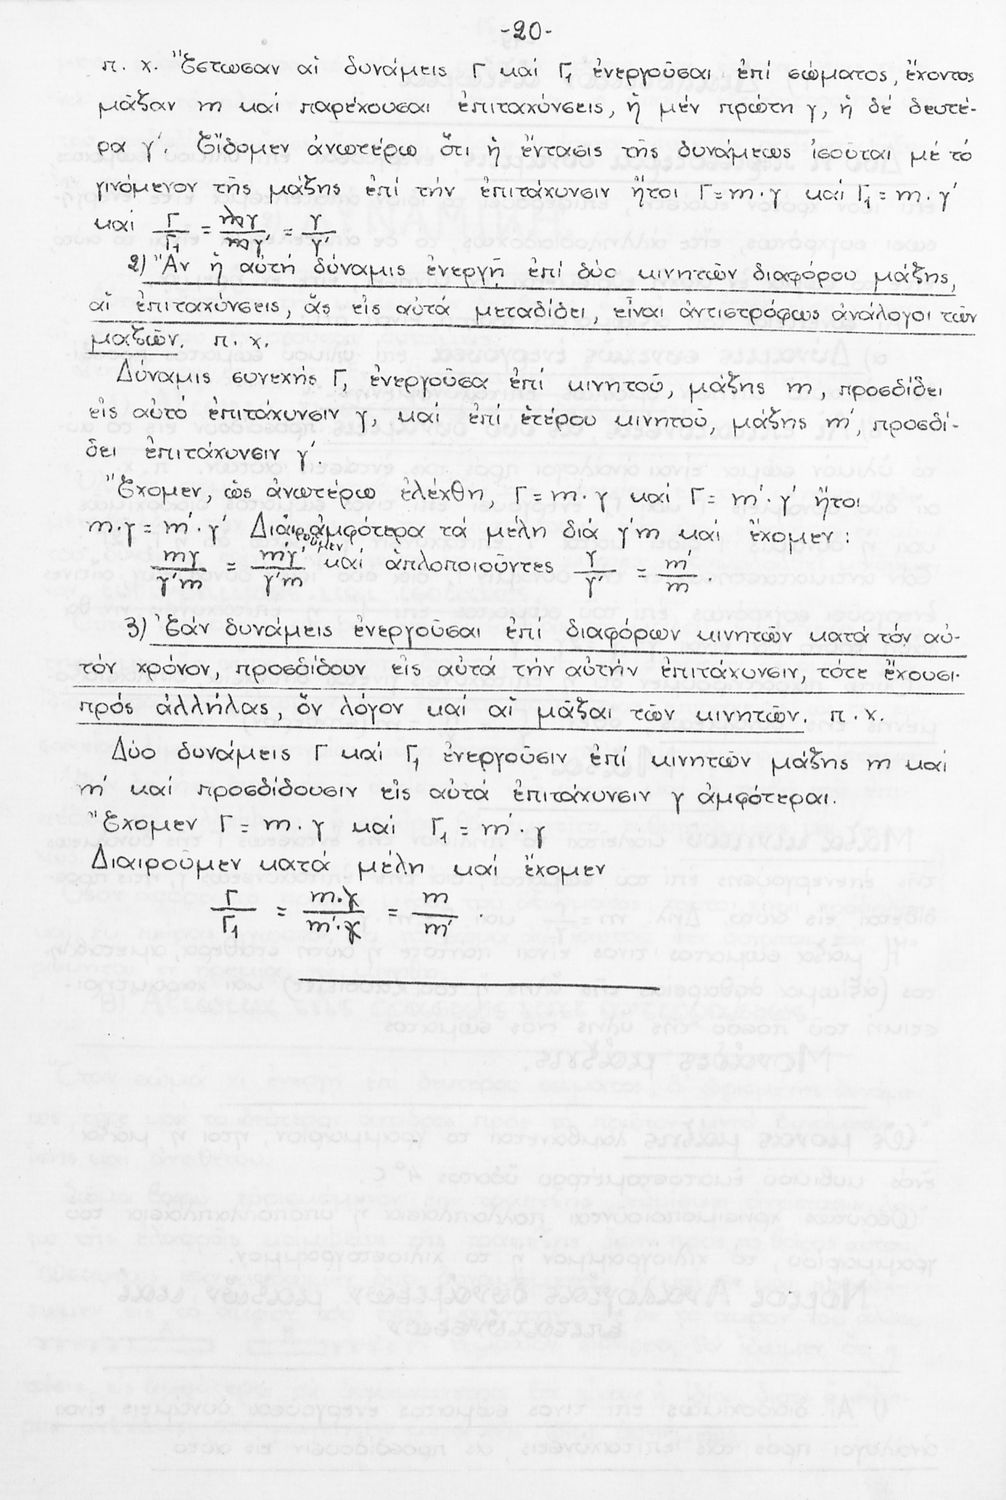 -20-
π. χ. Ἔστωσαν αἱ δυνάμεις Γ καί Γ₁ ἐνεργοῦσαι ἐπί σώματος, ἔχοντος
μᾶζαν m καί παρέχουσαι ἐπιταχύνσεις, ἡ μέν πρώτη γ, ἡ δέ δευτέ-
ρα γ′. Εἴδομεν ἀνωτέρω ὅτι ἡ ἔντασις τῆς δυνάμεως ἰσοῦται μέ τό
γινόμενον τῆς μάζης ἐπί τήν ἐπιτάχυνσιν ἤτοι Γ = m · γ καί Γ₁ = m · γ′
καί Γ/Γ₁ = mγ/mγ′ = γ/γ′
2) Ἄν ἡ αὐτή δύναμις ἐνεργῇ ἐπί δύο κινητῶν διαφόρου μάζης,
αἱ ἐπιταχύνσεις, ἅς εἰς αὐτά μεταδίδει, εἶναι ἀντιστρόφως ἀνάλογοι τῶν
μαζῶν. π. χ.
Δύναμις συνεχής Γ, ἐνεργοῦσα ἐπί κινητοῦ, μάζης m, προσδίδει
εἰς αὐτό ἐπιτάχυνσιν γ, καί ἐπί ἑτέρου κινητοῦ, μάζης m′, προσδί-
δει ἐπιτάχυνσιν γ′.
Ἔχομεν, ὡς ἀνωτέρω ἐλέχθη, Γ = m · γ καί Γ = m′ · γ′ ἤτοι
m · γ = m′ · γ′ Διαιροῦμεν ἀμφότερα τά μέλη διά γ′m καί ἔχομεν :
mγ/γ′m = m′γ′/γ′m καί ἁπλοποιοῦντες γ/γ′ = m′/m .
3) Ἐάν δυνάμεις ἐνεργοῦσαι ἐπί διαφόρων κινητῶν κατά τόν αὐ-
τόν χρόνον, προσδίδουν εἰς αὐτά τήν αὐτήν ἐπιτάχυνσιν, τότε ἔχουσι
πρός ἀλλήλας, ὅν λόγον καί αἱ μᾶζαι τῶν κινητῶν. π. χ.
Δύο δυνάμεις Γ καί Γ₁ ἐνεργοῦσιν ἐπί κινητῶν μάζης m καί
m′ καί προσδίδουσιν εἰς αὐτά ἐπιτάχυνσιν γ ἀμφότεραι.
Ἔχομεν Γ = m · γ καί Γ₁ = m′ · γ
Διαιροῦμεν κατά μέλη καί ἔχομεν
Γ/Γ₁ = m·γ/m′·γ = m/m′ .